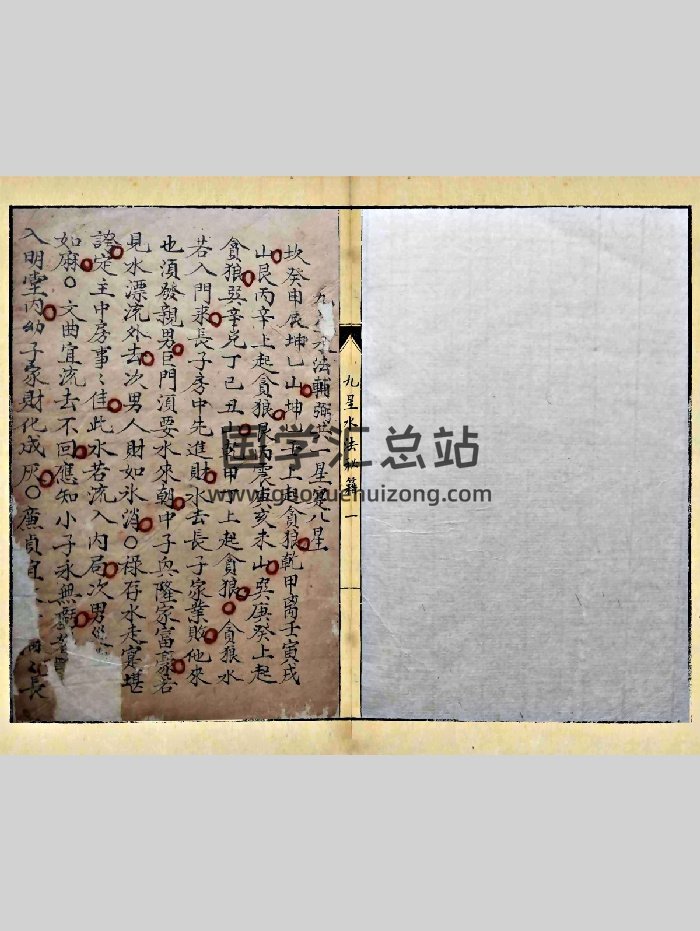 九星水法秘籍 一
九 水法輔弼 一星是八星
坎癸申辰坤乙山坤 上起貪狼乾甲离壬寅戌
山艮丙辛上起貪狼艮丙震庚亥未山巽庚癸上起
貪狼巽辛兑丁己丑山乾甲丁上起貪狼貪狼水
若入門來長子房中先進財水去長子家業敗他來
也須發親男巨門須要水來朝中子興隆家富豪若
見水漂流外去次男人財如氷消○祿存水走寔堪
誇定主中房事〻佳此水若流入内局次男
如麻○文曲宜流去不回應知小子永無
入明堂内幼子家財化成灰○廉貞宜 長
国学汇总站
www.guoxuehuizong.com